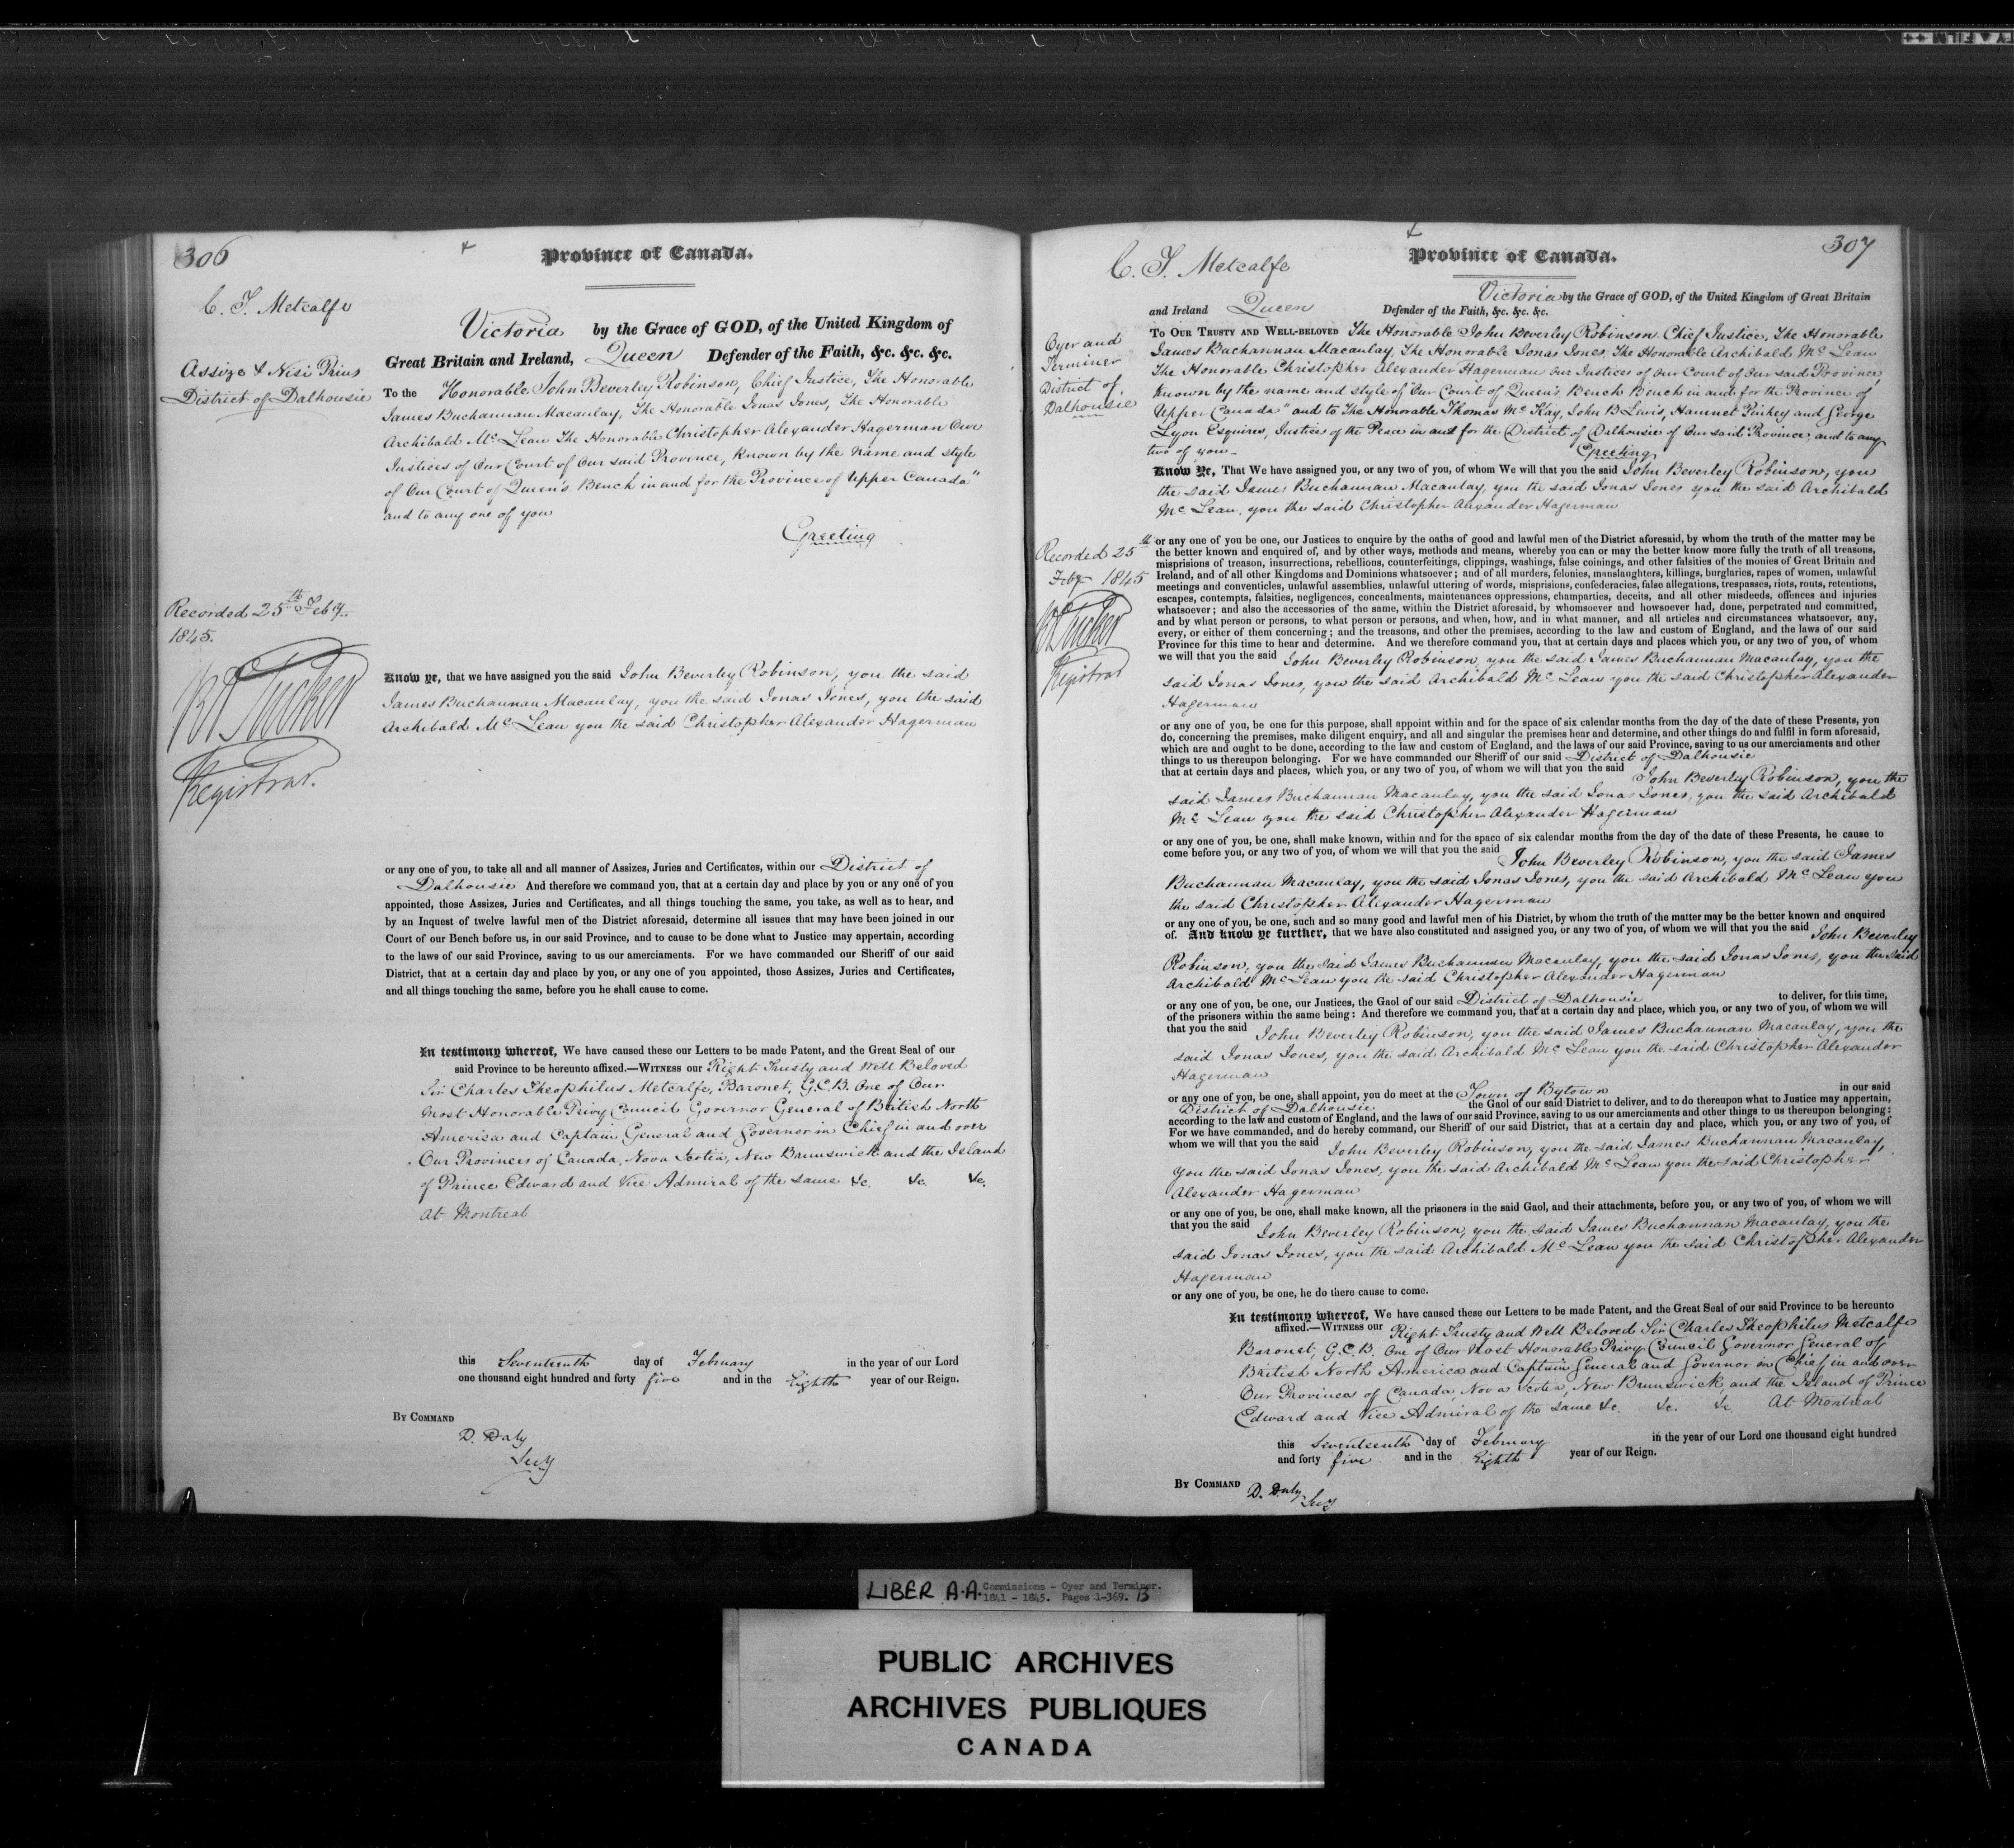 306
Province of Canada.
C. T. Metcalfe
Assize & Nisi Prius
District of Dalhousie
Victoria by the Grace of GOD, of the United Kingdom of
Great Britain and Ireland, Queen Defender of the Faith, &c. &c. &c.
To the Honorable John Beverley Robinson, Chief Justice, The Honorable
James Buchannan Macaulay, The Honorable Jonas Jones, The Honorable
Archibald Mc Lean The Honorable Christopher Alexander Hagerman Our
Justices of Our Court of Our said Province, Known by the Name and style
of Our Court of Queen's Bench in and for the Province of Upper Canada"
and to any one of you
Greeting
Recorded 25th Feby
1845.
Tucker
Registrar.
Know ye, that we have assigned you the said John Beverley Robinson, you the said
James Buchannan Macaulay, you the said Jonas Jones, you the said
Archibald Mc Lean you the said Christopher Alexander Hagerman
or any one of you, to take all and all manner of Assizes, Juries and Certificates, within our District of
Dalhousie And therefore we command you, that at a certain day and place by you or any one of you
appointed, those Assizes, Juries and Certificates, and all things touching the same, you take, as well as to hear, and
by an Inquest of twelve lawful men of the District aforesaid, determine all issues that may have been joined in our
Court of our Bench before us, in our said Province, and to cause to be done what to Justice may appertain, according
to the laws of our said Province, saving to us our amerciaments. For we have commanded our Sheriff of our said
District, that at a certain day and place by you, or any one of you appointed, those Assizes, Juries and Certificates,
and all things touching the same, before you he shall cause to come.
In testimony whereof, We have caused these our Letters to be made Patent, and the Great Seal of our
said Province to be hereunto affixed.—WITNESS our Right Trusty and Well Beloved
Sir Charles Theophilus Metcalfe, Baronet, G.C.B. One of Our
Most Honorable Privy Council Governor General of British North
America and Captain General and Governor in Chief in and over
Our Provinces of Canada, Nova Scotia, New Brunswick and the Island
of Prince Edward and Vice Admiral of the same &c. &c. &c.
At Montreal
this Seventeenth day of February in the year of our Lord
one thousand eight hundred and forty five and in the Eighth year of our Reign.
BY COMMAND
D. Daly
Secy
307
Province of Canada.
C. T. Metcalfe
Victoria by the Grace of GOD, of the United Kingdom of Great Britain
and Ireland Queen Defender of the Faith, &c. &c. &c.
Oyer and
Terminer
District of
Dalhousie
TO OUR TRUSTY AND WELL-BELOVED The Honorable John Beverley Robinson Chief Justice, The Honorable
James Buchannan Macaulay, The Honorable Jonas Jones, The Honorable Archibald Mc Lean
The Honorable Christopher Alexander Hagerman Our Justices of Our Court of Our said Province,
Known by the name and style of Our Court of Queen's Bench Bench in and for the Province of
Upper Canada" and to The Honorable Thomas Mc Kay, John B Lewis, Hamnet Pinkey and George
Lyon Esquires, Justices of the Peace in and for the District of Dalhousie of Our said Province, and to any
two of you
Greeting
Know Ye, That We have assigned you, or any two of you, of whom We will that you the said John Beverley Robinson, you
the said James Buchannan Macaulay, you the said Jonas Jones you the said Archibald
Mc Lean, you the said Christopher Alexander Hagerman
Recorded 25th
Feby 1845
Tucker
Registrar
or any one of you be one, our Justices to enquire by the oaths of good and lawful men of the District aforesaid, by whom the truth of the matter may be
the better known and enquired of, and by other ways, methods and means, whereby you can or may the better know more fully the truth of all treasons,
misprisions of treason, insurrections, rebellions, counterfeitings, clippings, washings, false coinings, and other falsities of the monies of Great Britain and
Ireland, and of all other Kingdoms and Dominions whatsoever; and of all murders, felonies, manslaughters, killings, burglaries, rapes of women, unlawful
meetings and conventicles, unlawful assemblies, unlawful uttering of words, misprisions, confederacies, false allegations, trespasses, riots, routs, retentions,
escapes, contempts, falsities, negligences, concealments, maintenances oppressions, champarties, deceits, and all other misdeeds, offences and injuries
whatsoever; and also the accessories of the same, within the District aforesaid, by whomsoever and howsoever had, done, perpetrated and committed,
and by what person or persons, to what person or persons, and when, how, and in what manner, and all articles and circumstances whatsoever, any,
every, or either of them concerning; and the treasons, and other the premises, according to the law and custom of England, and the laws of our said
Province for this time to hear and determine. And we therefore command you, that at certain days and places which you, or any two of you, of whom
we will that you the said John Beverley Robinson, you the said James Buchannan Macaulay, you the
said Jonas Jones, you the said Archibald Mc Lean you the said Christopher Alexander
Hagerman
or any one of you, be one for this purpose, shall appoint within and for the space of six calendar months from the day of the date of these Presents, you
do, concerning the premises, make diligent enquiry, and all and singular the premises hear and determine, and other things do and fulfil in form aforesaid,
which are and ought to be done, according to the law and custom of England, and the laws of our said Province, saving to us our amerciaments and other
things to us thereupon belonging. For we have commanded our Sheriff of our said District of Dalhousie
that at certain days and places, which you, or any two of you, of whom we will that you the said John Beverley Robinson, you the
said James Buchannan Macaulay, you the said Jonas Jones, you the said Archibald
Mc Lean you the said Christopher Alexander Hagerman
or any one of you, be one, shall make known, within and for the space of six calendar months from the day of the date of these Presents, he cause to
come before you, or any two of you, of whom we will that you the said John Beverley Robinson, you the said James
Buchannan Macaulay, you the said Jonas Jones, you the said Archibald Mc Lean you
the said Christopher Alexander Hagerman
or any one of you, be one, such and so many good and lawful men of his District, by whom the truth of the matter may be the better known and enquired
of. And know ye further, that we have also constituted and assigned you, or any two of you, of whom we will that you the said John Beverley
Robinson, you the said James Buchannan Macaulay, you the said Jonas Jones, you the said
Archibald Mc Lean you the said Christopher Alexander Hagerman
or any one of you, be one, our Justices, the Gaol of our said District of Dalhousie to deliver, for this time,
of the prisoners within the same being: And therefore we command you, that at a certain day and place, which you, or any two of you, of whom we will
that you the said John Beverley Robinson, you the said James Buchannan Macaulay, you the
said Jonas Jones, you the said Archibald Mc Lean you the said Christopher Alexander
Hagerman
or any one of you, be one, shall appoint, you do meet at the Town of Bytown in our said
District of Dalhousie the Gaol of our said District to deliver, and to do thereupon what to Justice may appertain,
according to the law and custom of England, and the laws of our said Province, saving to us our amerciaments and other things to us thereupon belonging:
For we have commanded, and do hereby command, our Sheriff of our said District, that at a certain day and place, which you, or any two of you, of
whom we will that you the said John Beverley Robinson, you the said James Buchannan Macaulay,
you the said Jonas Jones, you the said Archibald Mc Lean you the said Christopher
Alexander Hagerman
or any one of you, be one, shall make known, all the prisoners in the said Gaol, and their attachments, before you, or any two of you, of whom we will
that you the said John Beverley Robinson, you the said James Buchannan Macaulay, you the
said Jonas Jones, you the said Archibald Mc Lean you the said Christopher Alexander
Hagerman
or any one of you, be one, he do there cause to come.
In testimony whereof, We have caused these our Letters to be made Patent, and the Great Seal of our said Province to be hereunto
affixed.—WITNESS our Right Trusty and Well Beloved Sir Charles Theophilus Metcalfe
Baronet, G.C.B. One of Our Most Honorable Privy Council Governor General of
British North America and Captain General and Governor in Chief in and over
Our Provinces of Canada, Nova Scotia, New Brunswick, and the Island of Prince
Edward and Vice Admiral of the same &c. &c. &c. At Montreal
this Seventeenth day of February in the year of our Lord one thousand eight hundred
and forty five and in the Eighth year of our Reign.
BY COMMAND D. Daly
Secy
LIBER A.A. Commissions - Oyer and Terminer.
1841 - 1845. Pages 1-369.
PUBLIC ARCHIVES
ARCHIVES PUBLIQUES
CANADA